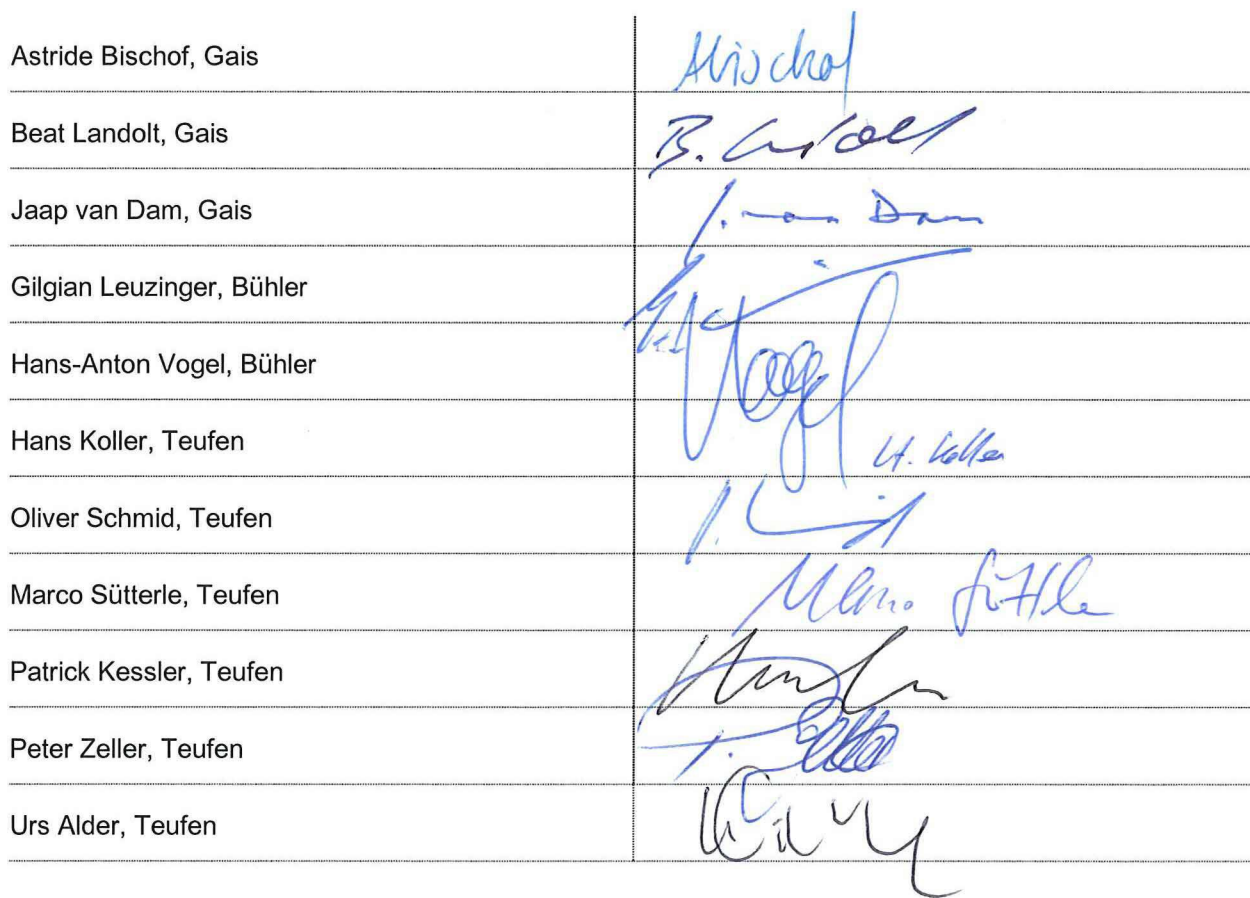 Astride Bischof, Gais ABischof
Beat Landolt, Gais B. Landolt
Jaap van Dam, Gais J. van Dam
Gilgian Leuzinger, Bühler
Hans-Anton Vogel, Bühler Vogel
Hans Koller, Teufen H. Koller
Oliver Schmid, Teufen
Marco Sütterle, Teufen Marco Sütterle
Patrick Kessler, Teufen
Peter Zeller, Teufen P. Zeller
Urs Alder, Teufen